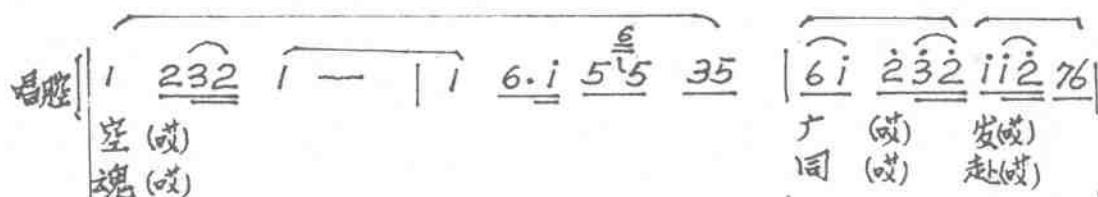 唱腔 1 232 1 — | 1 6.i 5 6 5 35 | 6i 2̇3̇2̇ i̇i̇2̇ 76 |
空(哎) 广 (哎) 发(哎)
魂(哎) 同 (哎) 赴(哎)